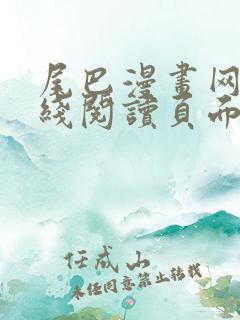 尾巴漫畫网
綫閱讀頁而
任成山
未经同意禁止转载